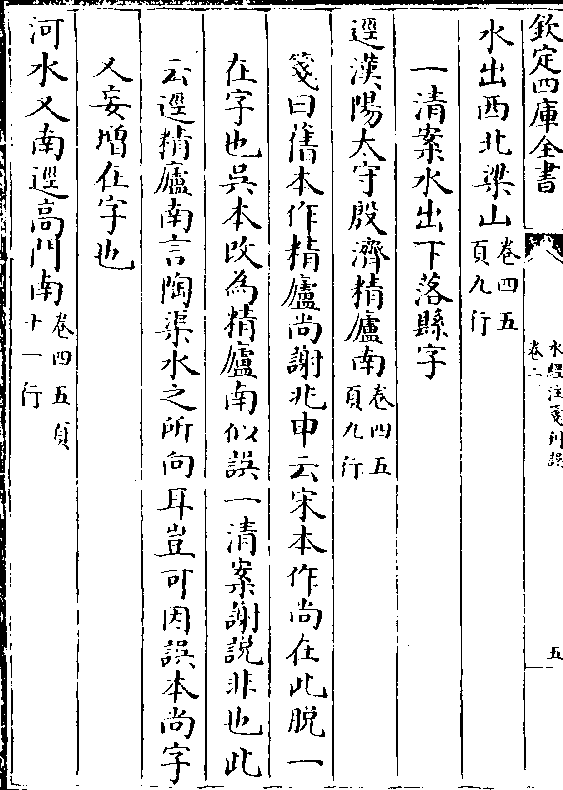 欽定四庫全書
水經注箋刊誤
卷二
五
水出西北梁山卷四五
頁九行
一清案水出下落縣字
逕漢陽太守殷濟精廬南卷四五
頁九行
箋曰舊本作精廬尚謝兆申云宋本作尚在此脱一
在字也吳本改為精廬南似誤一清案謝説非也此
云逕精廬南言陶渠水之所向耳豈可因誤本尚字
又妄增在字也
河水又南逕高門南卷四五頁
十一行